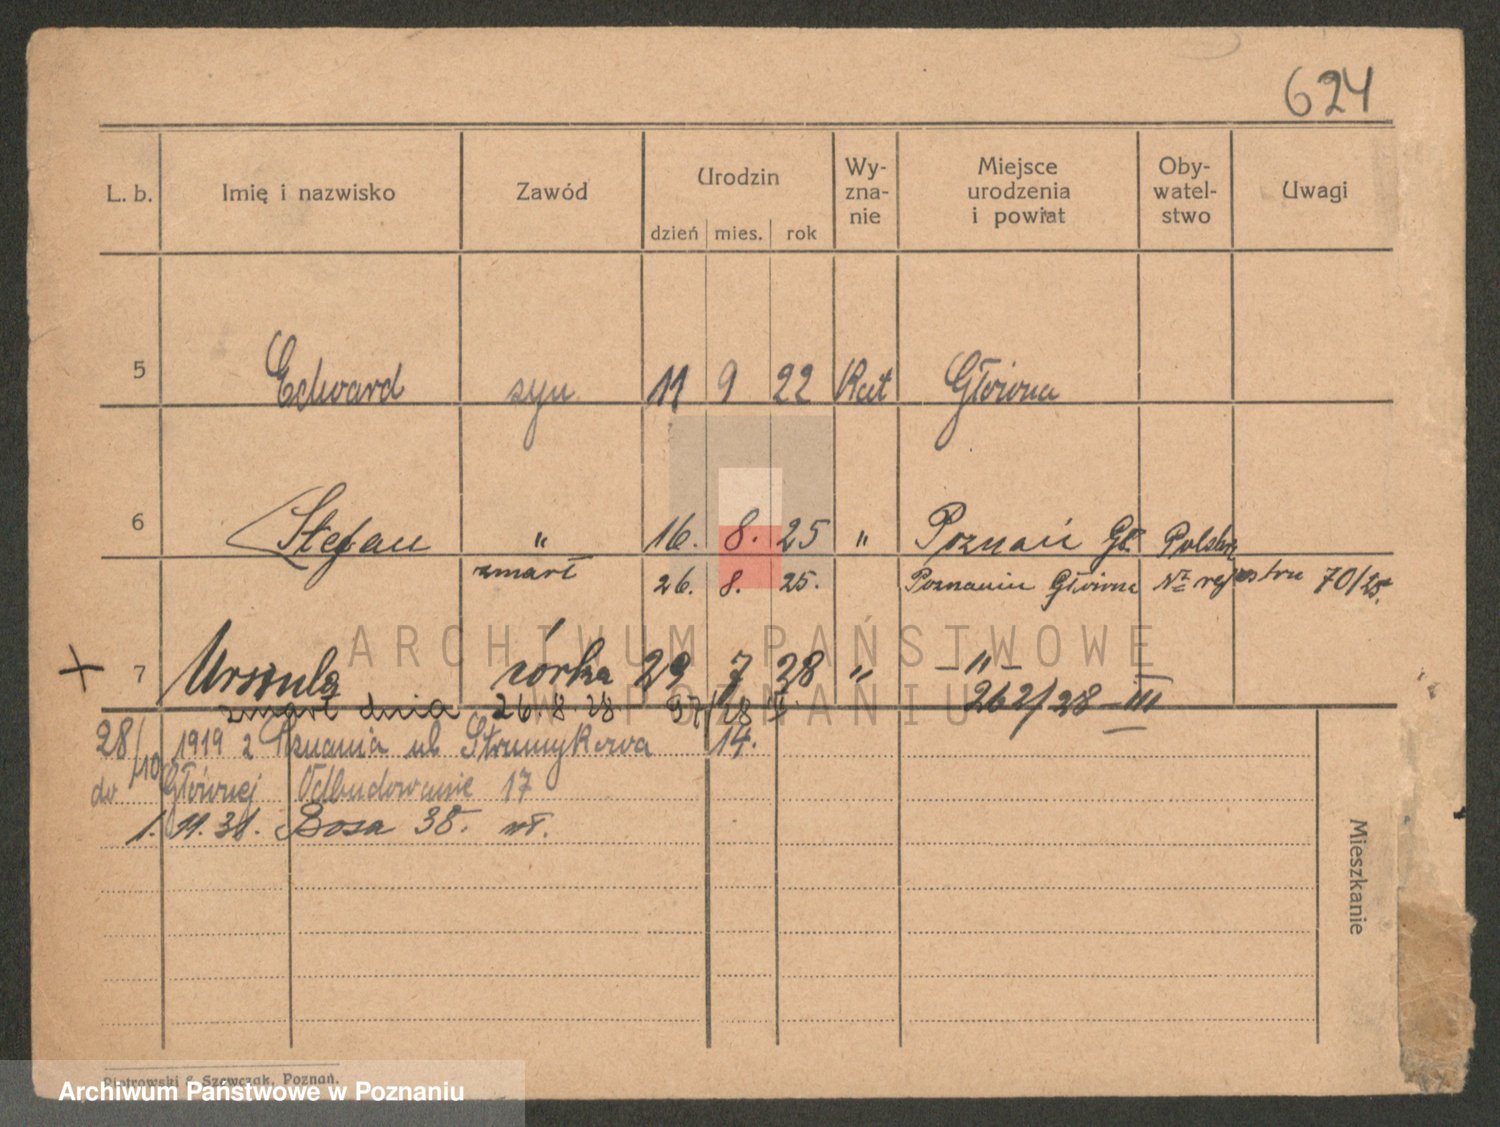 624
L. b. Imię i nazwisko Zawód Urodzin dzień mies. rok Wy-zna-nie Miejsce urodzenia i powiat Oby-watel-stwo Uwagi
5 Edward syn 11 9 22 Kat Główna
6 Stefan " 16. 8. 25 " Poznań Gł. Polska
zmarł 26. 8. 25. Poznaniu Główna Nr rejestru 70/25.
ARCHIWUM PAŃSTWOWE
+ 7 Urszula córka 29 7 28 " – " –
W POZNANIU
262/28 – III
zmarł dnia 26. 8. 28.
28/10 1919 z Poznania ul. Strumykowa 14.
do Głównej Odbudowanie 17
1. 11. 31. Bosa 38. wł.
Mieszkanie
Piotrowski & Szewczak, Poznań.
Archiwum Państwowe w Poznaniu